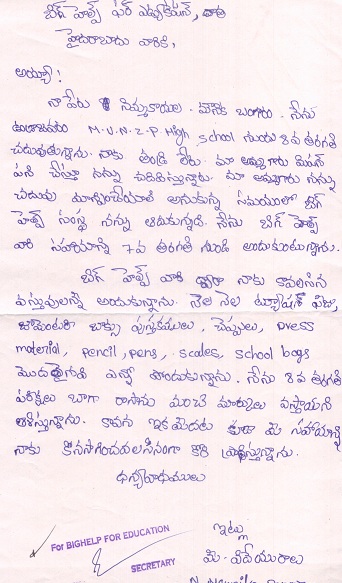 బిగ్ హెల్ప్ ఫర్ ఎడ్యుకేషన్,
హైదరాబాదు వారికి,
అయ్యా!
నా పేరు నిమ్మకాయల మౌనిక బంగారు. నేను
M.U.N.Z.P.High school నందు 8వ తరగతి
చదువుతున్నాను. నాకు తండ్రి లేరు. మా అమ్మగారు మిషన్
పని చేస్తూ నన్ను చదివిస్తున్నారు. మా అమ్మగారు నన్ను
చదువు అనుకున్న సమయంలో బిగ్
హెల్ప్ సంస్థ నన్ను ఆదుకున్నది. నేను బిగ్ హెల్ప్
వారి సహాయాన్ని 7వ తరగతి నుండి అందుకుంటున్నాను.
బిగ్ హెల్ప్ వారి ద్వారా నాకు కావలసిన
వస్తువులన్నీ అందుకున్నాను. నెల నెల ట్యూషన్ ఫీజు,
బాక్సు పుస్తకములు, చెప్పులు, press
material, pencil, pens, scales, school bags
మొదలైనవి ఎన్నో అందుకున్నాను. నేను 8వ తరగతి
పరీక్షలు బాగా రాసాను మంచి మార్కులు వస్తాయని
ఆశిస్తున్నాను. కావున ఇక మీదట కూడా మీ సహాయాన్ని
నాకు కొనసాగించవలసినదిగా కోరి ప్రార్థిస్తున్నాను.
ధన్యవాదములు
For BIGHELP FOR EDUCATION
SECRETARY
ఇట్లు
మీ విధేయురాలు